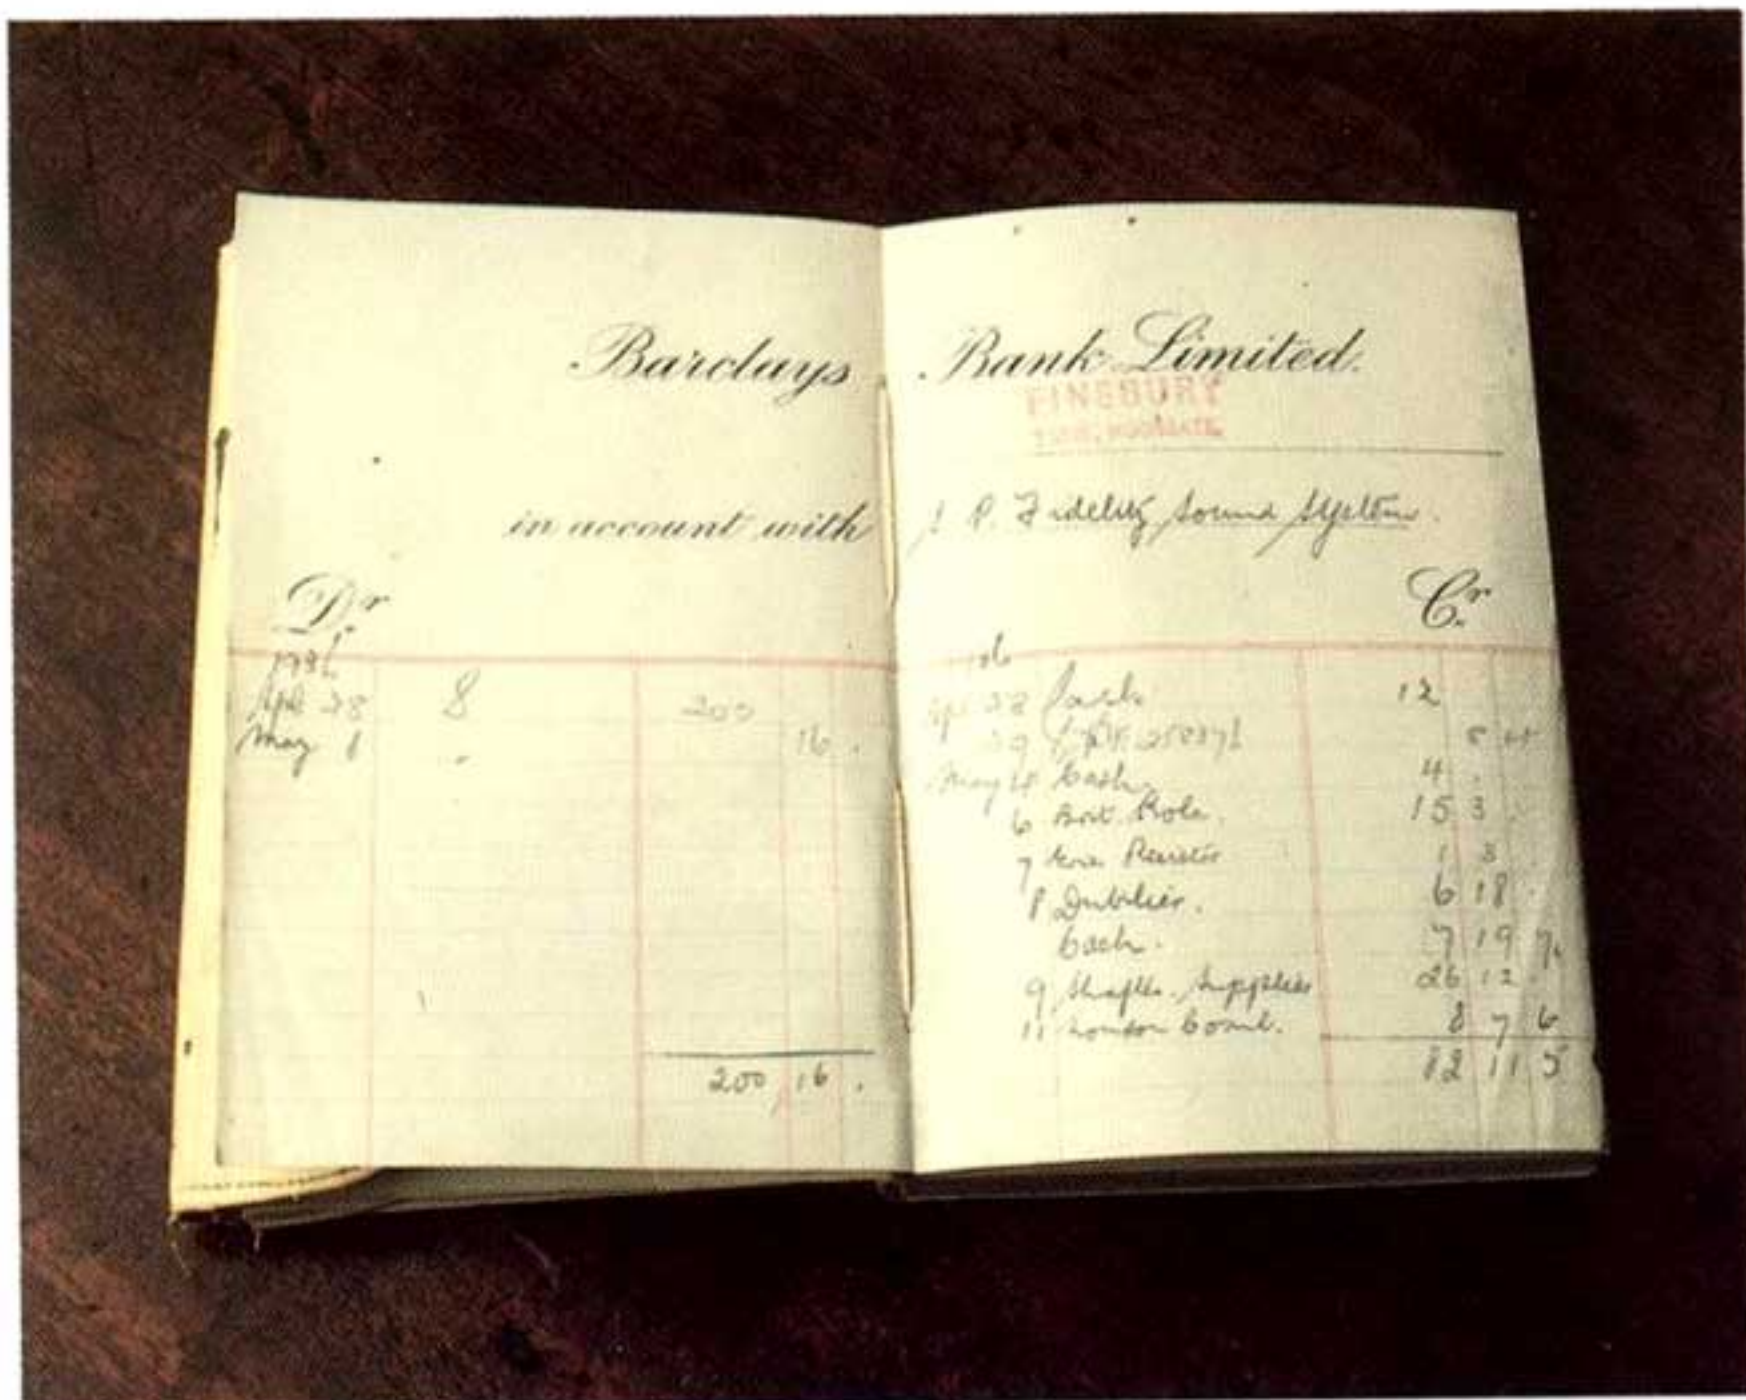 Barclays Bank Limited.
FINSBURY
in account with P. Fidelity Sound System.
Dr Cr
1936
Apl 28 8 200
May 1 16 .
28 Cash 12
May 4 Cash 4 .
6 Brit. Rola. 15 3 .
7 Resistor 1 3
8 Dubilier. 6 18 .
Cash. 7 19 7
9 Supplies 26 12 .
11 London 8 7 6
200 16 .
82 11 5